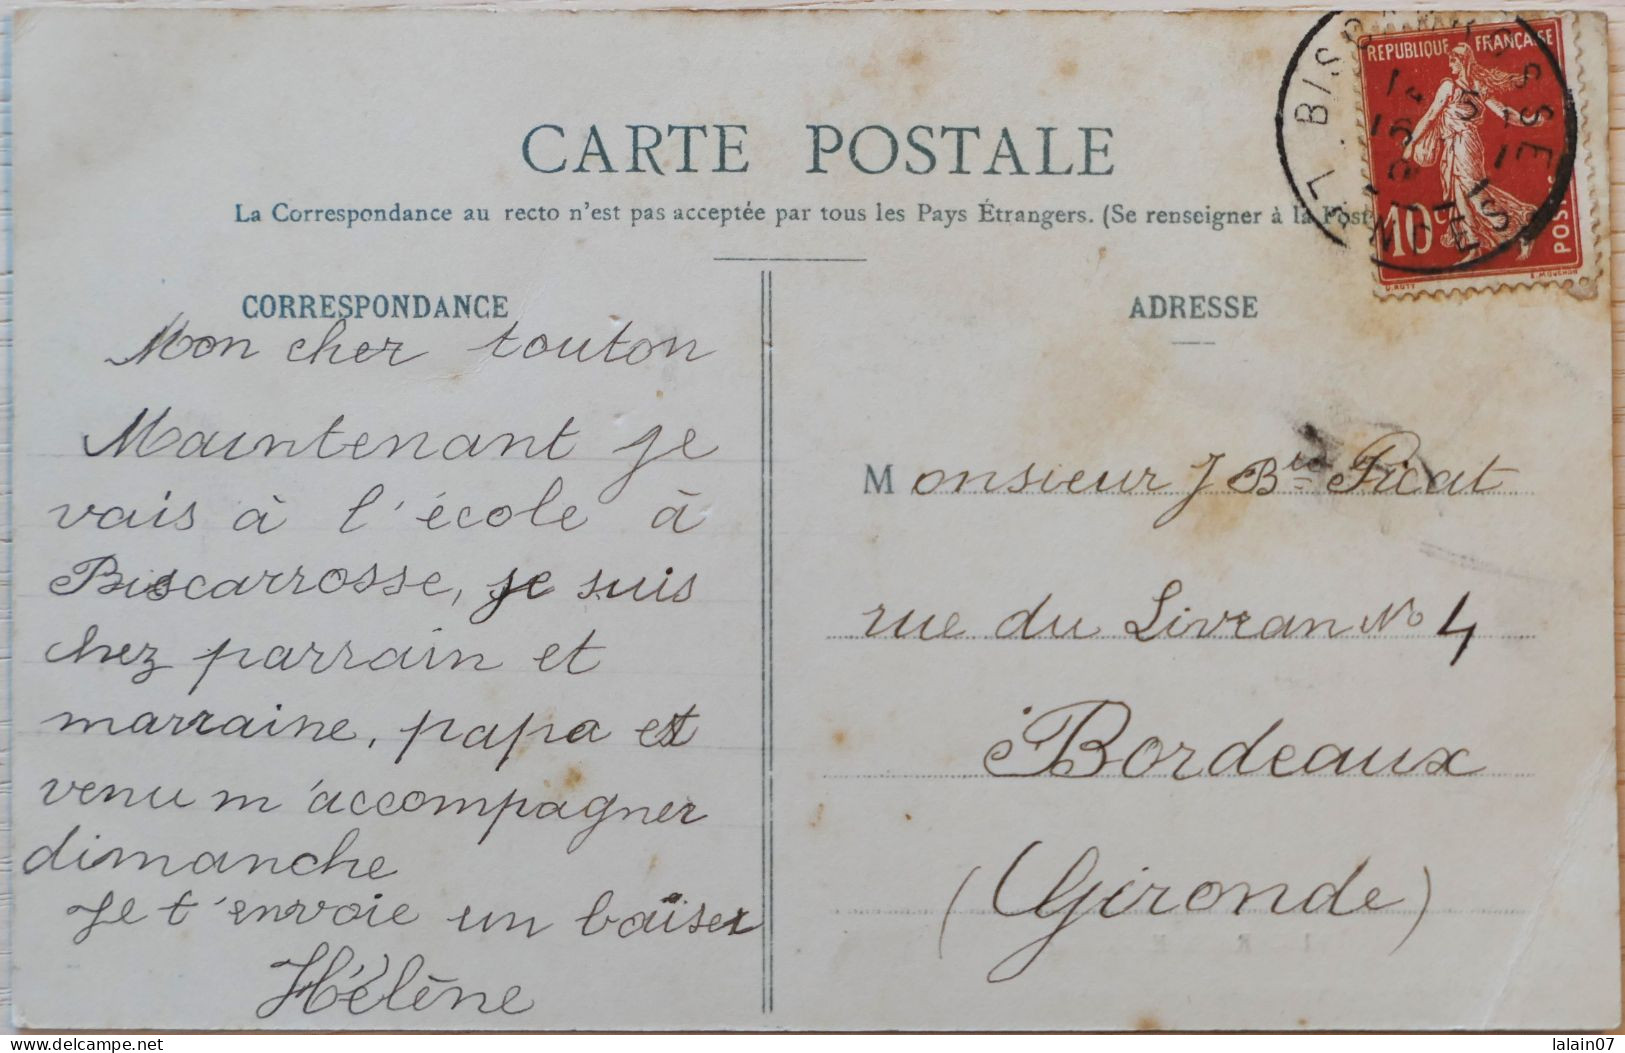 CARTE POSTALE
La Correspondance au recto n'est pas acceptée par tous les Pays Étrangers. (Se renseigner à la Post
REPUBLIQUE FRANÇAISE
10 c
POSTES
E. MOUCHON
O. ROTY
BISCARROSSE
LANDES
CORRESPONDANCE
Mon cher touton
Maintenant je
vais à l'école à
Biscarrosse, je suis
chez parrain et
marraine, papa est
venu m'accompagner
dimanche
Je t'envoie un baiser
Hélène
ADRESSE
Monsieur J Bte Picat
rue du Livran No 4
Bordeaux
(Gironde)
delcampe.net
lalain07